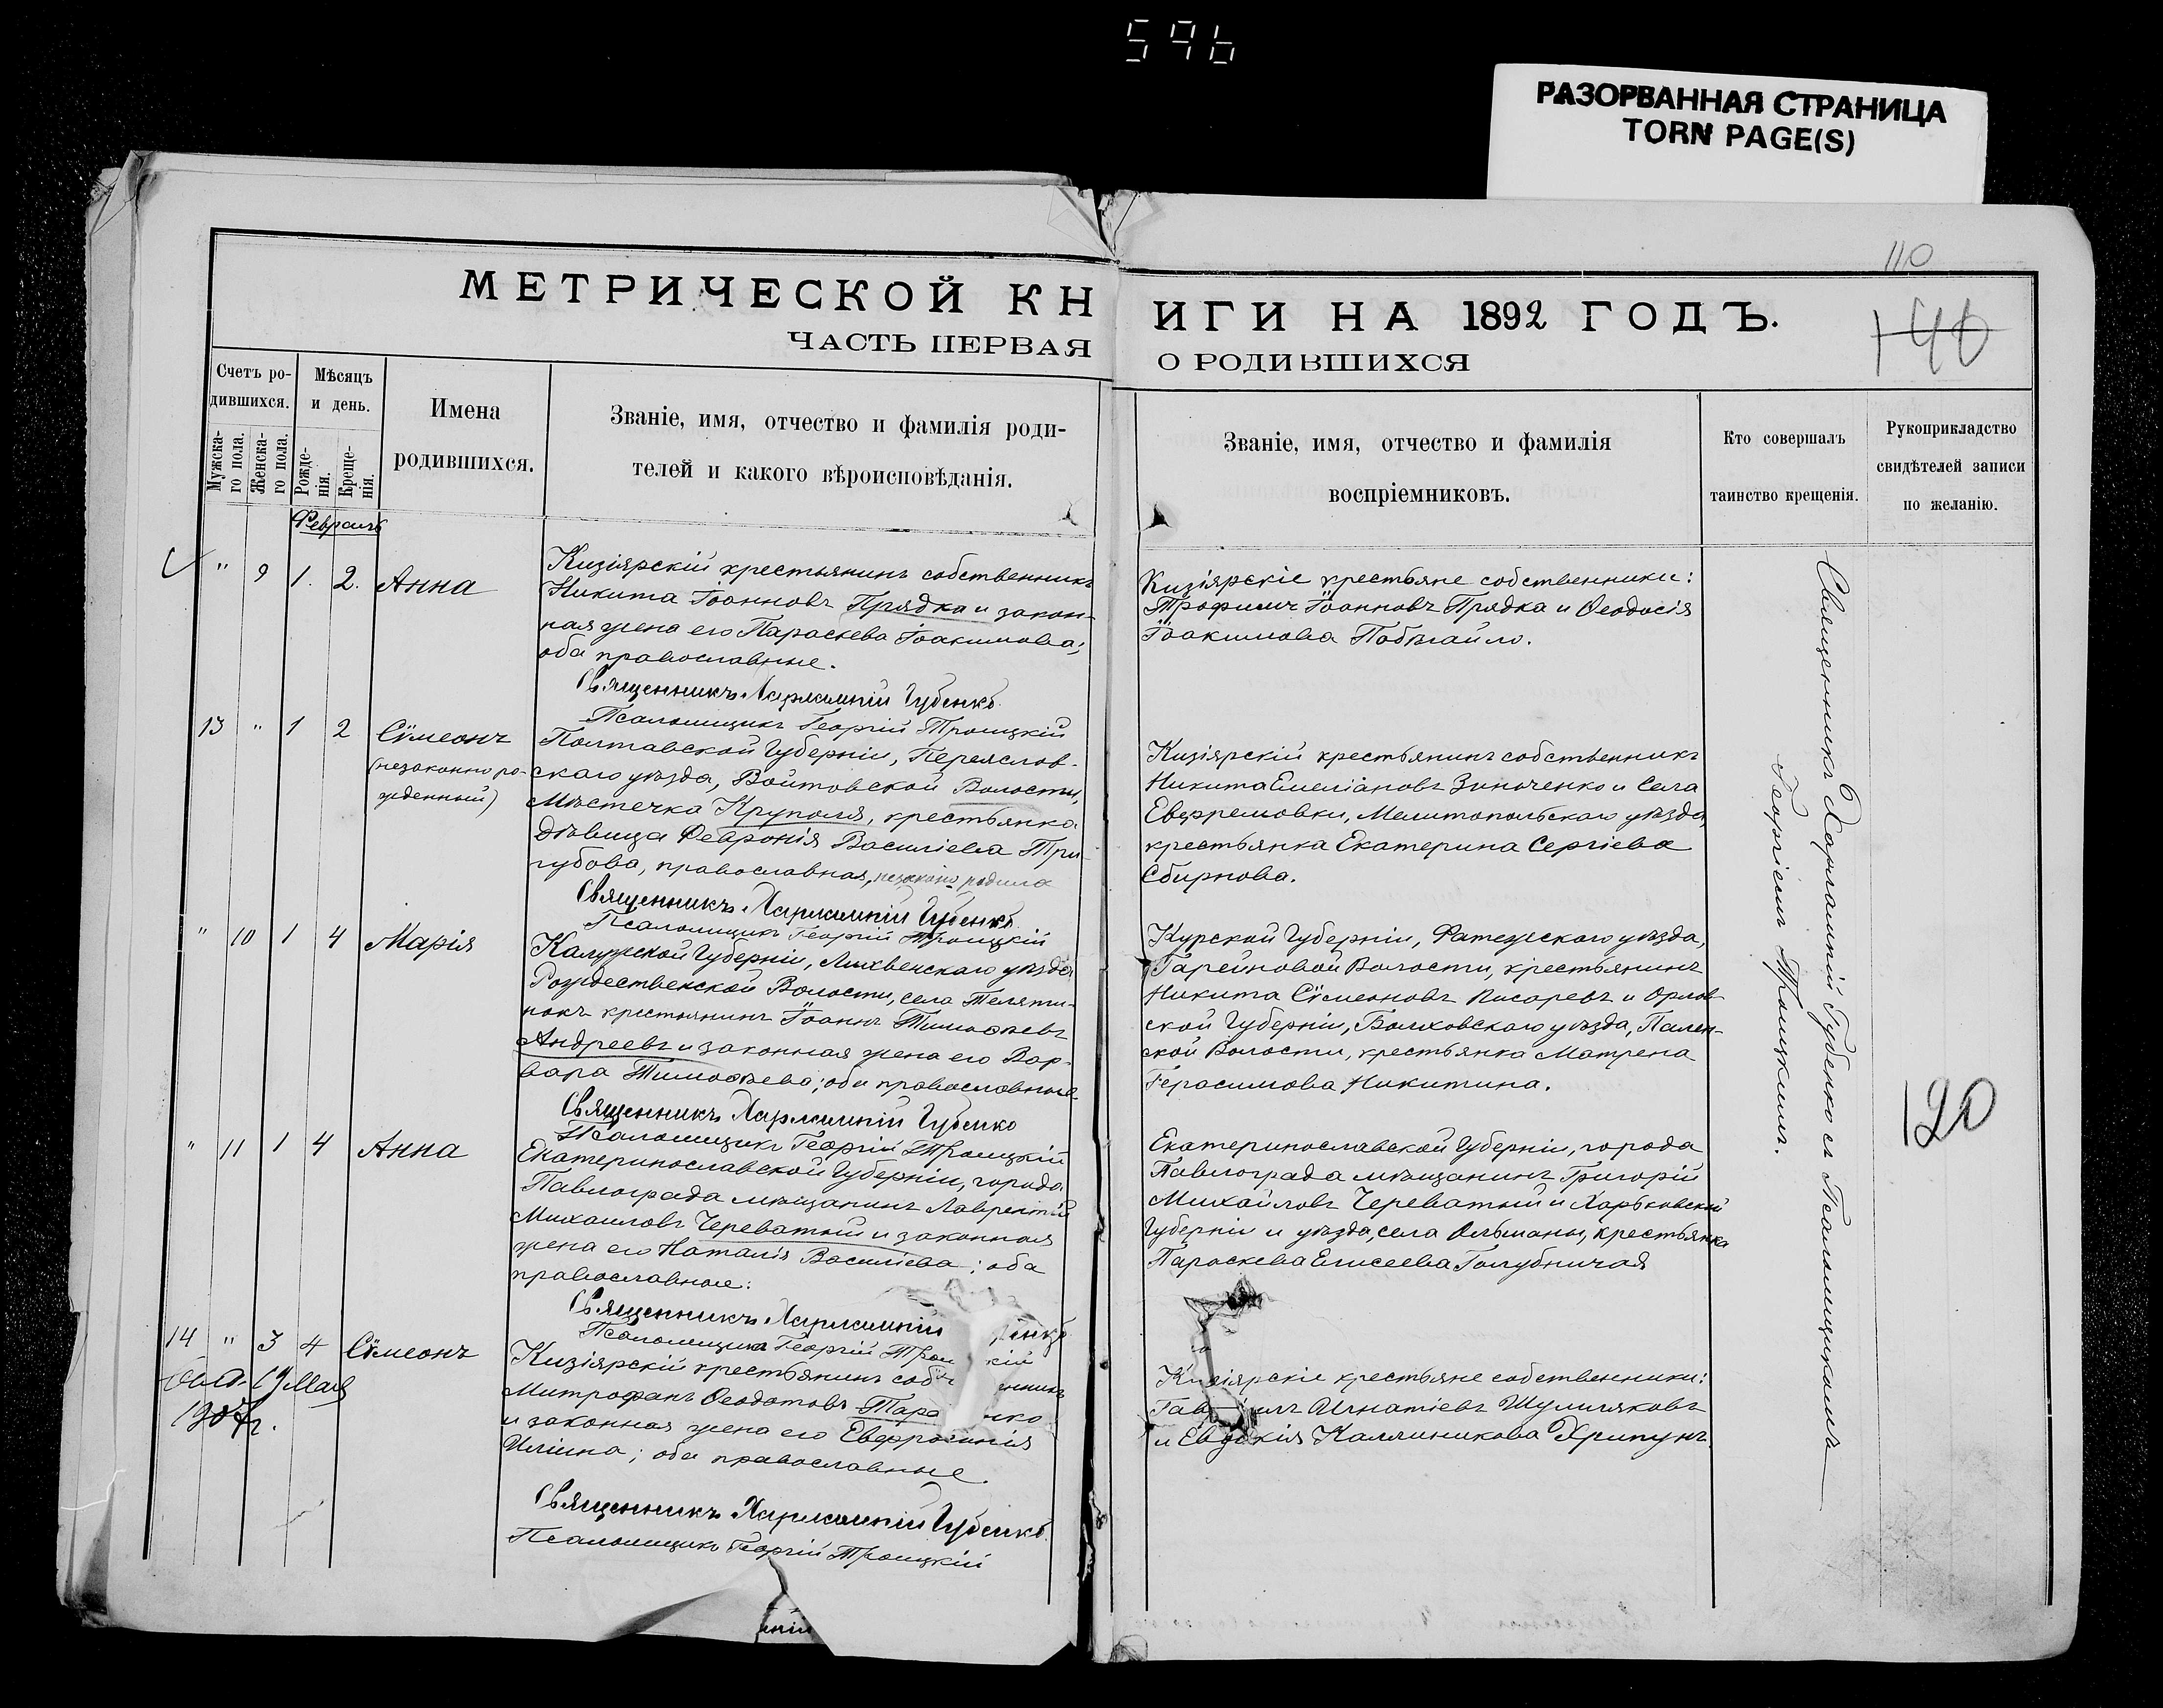 596
РАЗОРВАННАЯ СТРАНИЦА
TORN PAGE(S)
110
140
МЕТРИЧЕСКОЙ КНИГИ НА 1892 ГОДЪ.
ЧАСТЬ ПЕРВАЯ О РОДИВШИХСЯ
Счетъ ро-
дившихся.
Мужска-
го пола.
Женска-
го пола.
Мѣсяцъ
и день.
Рожде-
нія.
Креще-
нія.
Имена
родившихся.
Званіе, имя, отчество и фамилія роди-
телей и какого вѣроисповѣданія.
Званіе, имя, отчество и фамилія
воспріемниковъ.
Кто совершалъ
таинство крещенія.
Рукоприкладство
свидѣтелей записи
по желанію.
Февраль
" 9 1. 2. Анна
Кизіярскій крестьянинъ собственникъ
Никита Іоанновъ Прядка и закон-
ная жена его Параскева Іоакимова;
оба православные.
Священникъ Харлампій Губенко
Псаломщикъ Георгій Троицкій
Кизіярскіе крестьяне собственники:
Трофимъ Іоанновъ Прядка и Ѳеодосія
Іоакимова Побѣгайло.
13 " 1 2 Сѵмеонъ
(незаконно ро-
жденный)
Полтавской Губерніи, Переяслов-
скаго уѣзда, Войтовской Волости,
Мѣстечка Круполя, крестьянка
дѣвица Февронія Василіева Три-
губова, православная, незаконо родила
Священникъ Харлампій Губенко
Псаломщикъ Георгій Троицкій
Кизіярскій крестьянинъ собственникъ
Никита Емеліановъ Зинченко и Села
Евфремовки, Мелитопольскаго уѣзда,
крестьянка Екатерина Сергіева
Сбирнова.
" 10 1 4 Марія
Калужской Губерніи, Лихвенскаго уѣзда,
Рождественской Волости, села Теляти-
нокъ крестьянинъ Іоаннъ Тимоѳеевъ
Андреевъ и законная жена его Вар-
вара Тимоѳеева; оба православные
Священникъ Харлампій Губенко
Псаломщикъ Георгій Троицкій
Курской Губерніи, Фатежскаго уѣзда,
Гарейновой Волости, крестьянинъ
Никита Сѵмеоновъ Писаревъ и Орлов-
ской Губерніи, Болховскаго уѣзда, Пален-
ской Волости, крестьянка Матрена
Герасимова Никитина.
" 11 1 4 Анна
Екатеринославской Губерніи, города
Павлограда мѣщанинъ Лаврентій
Михаиловъ Череватый и законная
жена его Наталія Василіева; оба
православные:
Священникъ Харлампій енко
Псаломщикъ Георгій Трои кій
Екатеринославской Губерніи, города
Павлограда мѣщанинъ Григорій
Михайловъ Череватый и Харьковской
Губерніи и уѣзда, села Ольшаны, крестьянка
Параскева Елисеева Голубничая
14 " 3 4 Сѵмеонъ
19 Мая
1907 г.
Кизіярскій крестьянинъ соб енникъ
Митрофанъ Ѳеодотовъ Тара нко
и законная жена его Евфросинія
Иліина; оба православные.
Священникъ Харлампій Губенко
Псаломщикъ Георгій Троицкій
Кизіярскіе крестьяне собственники:
Гав илъ Игнатіевъ Шумляковъ
и Евдокія Каллиникова Хрипунъ.
Священникъ Харлампій Губенко съ Псаломщикомъ
Георгіемъ Троицкимъ.
120